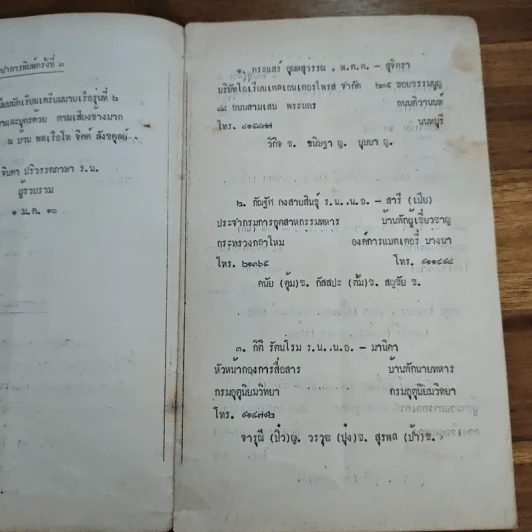 ยาการพิมพ์ครั้งที่ ๓
นักเรียนเตรียมนายเรือรุ่นที่ ๒
และบุตรด้วย ตามเสียงข้างมาก
ณ บ้าน พลเรือโท จิตต์ สังขดุลย์
จินดา ปริวรรตภาษา ร.น.
ผู้รวบรวม
๑ ม.ค. ๑๐
๑. กระแสร์ , พ.ต.ต. - สุจิตรา
บริษัทโรเรียนเตลเอนเตอร์ไพรส จำกัด ๒๓๕ ซอยธรรมนูญ
๘๘ ถนนสามเสน พระนคร ถนนติวานนท์
โทร. ๘๑๕๔๗๗ นนทบุรี
วิกิจ ช. ขนิษฐา ญ. บุษบา ญ.
๒. กัณฐัก กงสายสินธุ์ ร.น.,น.อ. - สารี่ (เปี๊ยบ)
ประจำกรมการอุตสาหกรรมทหาร บ้านพักผู้เชี่ยวชาญ
กระทรวงกลาโหม องค์การแบตเตอรี่ บางนา
โทร. ๒๑๓๖๕ โทร. ๙๑๑๔๔๔
คนัย (ตุ้ม)ช. กัสสปะ (ต้ม)ช. สญชัย ช.
๓. กิติ รัตนโรม ร.น.,น.อ. - มานิดา
หัวหน้ากองการสื่อสาร บ้านพักนายทหาร
กรมอุตุนิยมวิทยา กรมอุตุนิยมวิทยา
โทร. ๙๑๔๗๓๒
จารุณี (ปิ๋ว)ญ. วรวุฒ (ปุ๋ง)ช. สุรพล (ป๋า)ช.